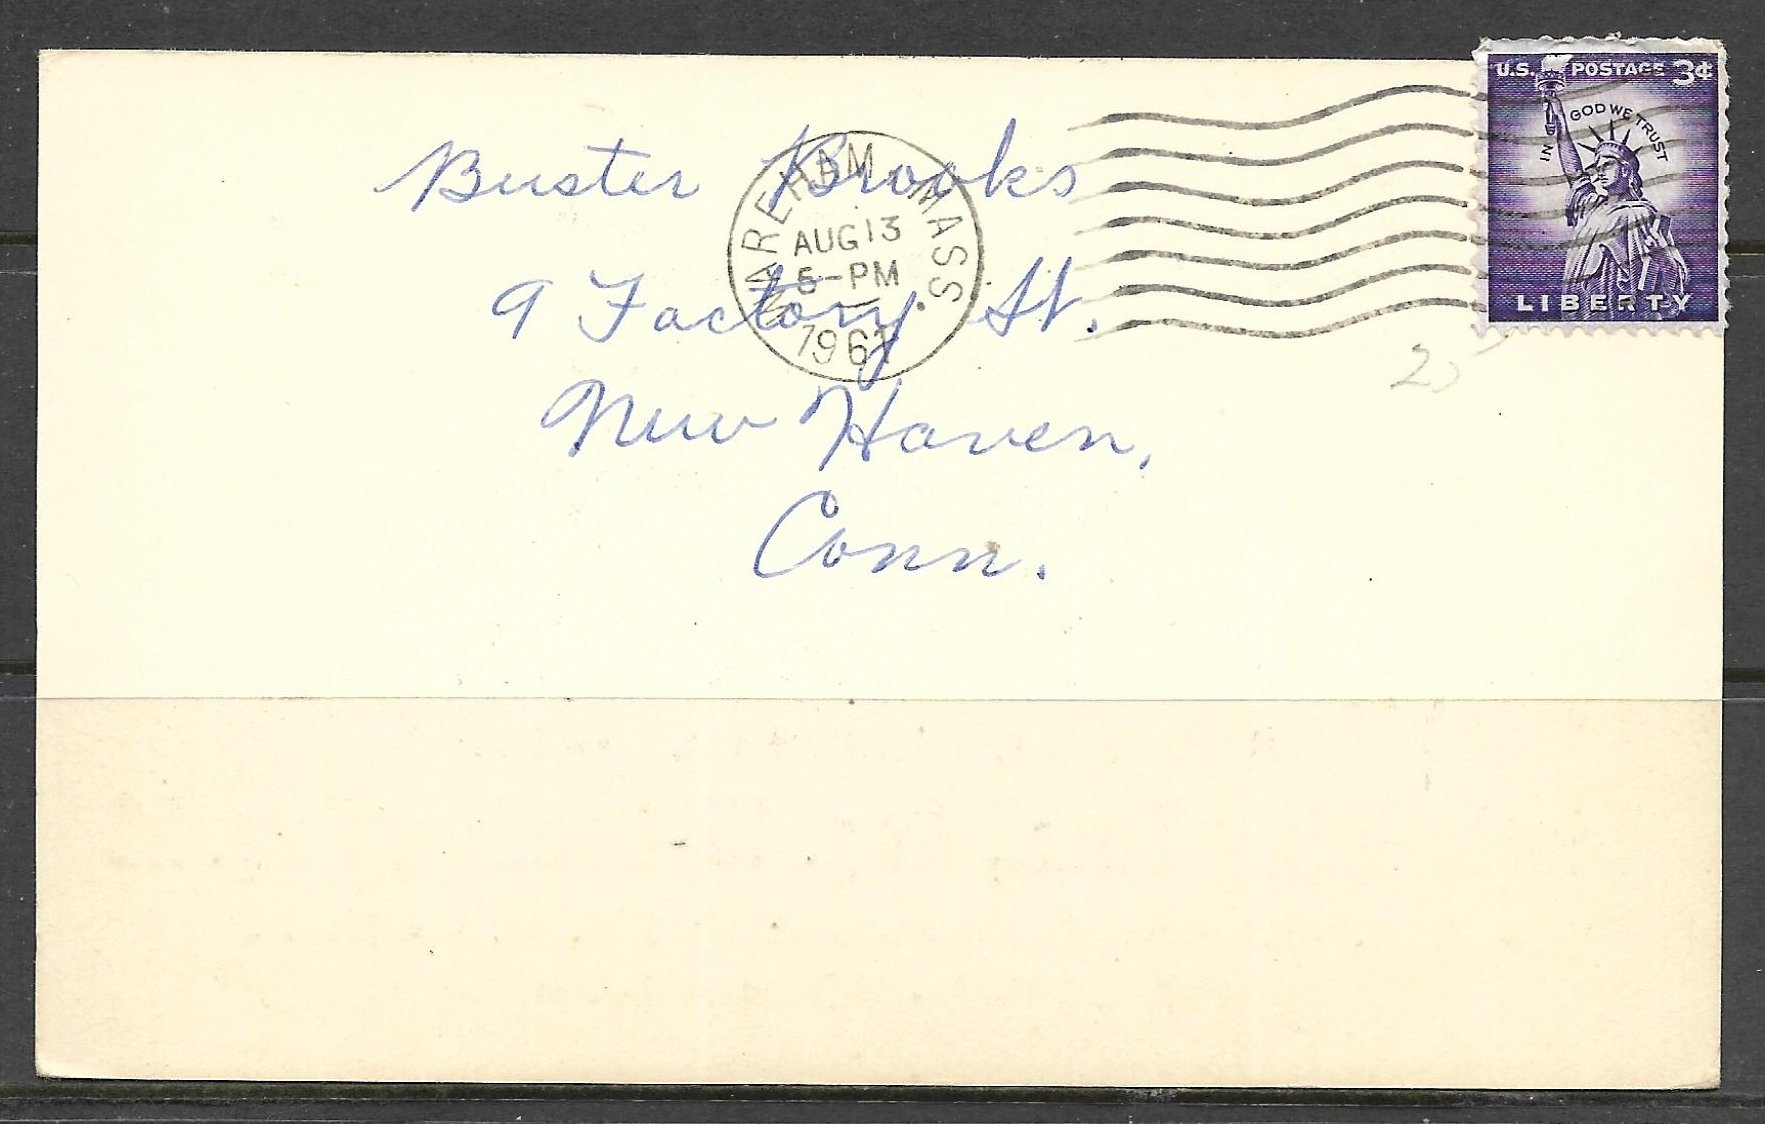 U.S. POSTAGE 3¢
IN GOD WE TRUST
LIBERTY
WAREHAM MASS.
AUG 13
5-PM
1961
Buster Brooks
9 Factory St.
New Haven,
Conn.